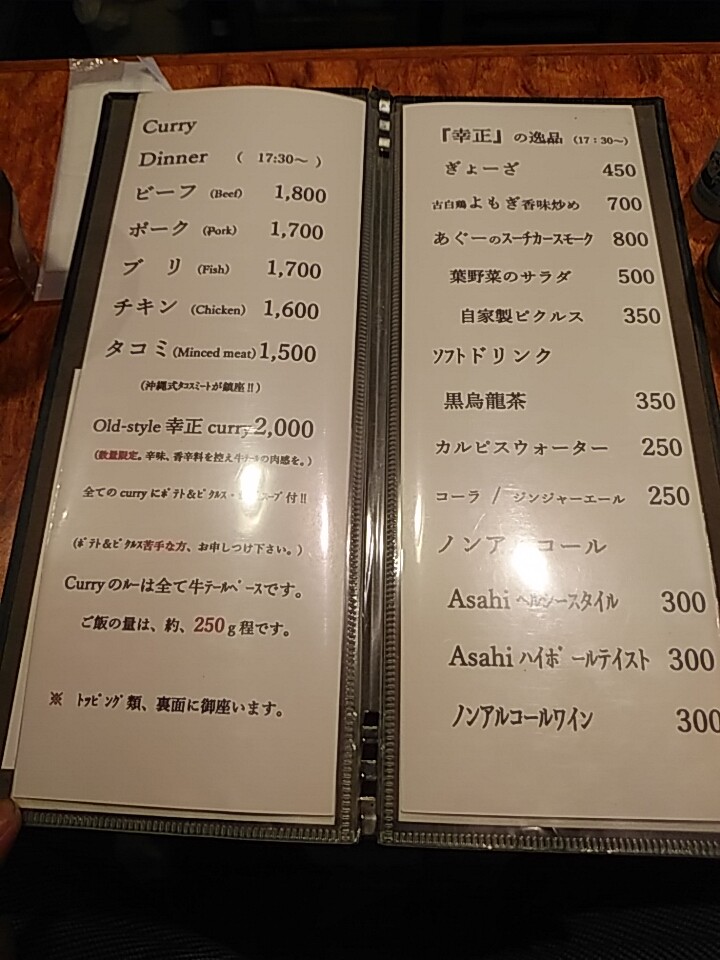 Curry
Dinner ( 17:30~ )
ビーフ (Beef) 1,800
ポーク (Pork) 1,700
ブリ (Fish) 1,700
チキン (Chicken) 1,600
タコミ (Minced meat) 1,500
(沖縄式ﾀｺｽﾐｰﾄが鎮座!!)
Old-style 幸正 curry 2,000
(数量限定。辛味、香辛料を控え牛ﾃｰﾙの肉感を。)
全ての curry にﾎﾟﾃﾄ&ﾋﾟｸﾙｽ・ｽｰﾌﾟ付!!
(ﾎﾟﾃﾄ&ﾋﾟｸﾙｽ苦手な方、お申しつけ下さい。)
Curry のﾙｰは全て牛ﾃｰﾙﾍﾞｰスです。
ご飯の量は、約、250g 程です。
※ ﾄｯﾋﾟﾝｸﾞ類、裏面に御座います。
『幸正』の逸品 (17：30~)
ぎょーざ 450
古白鶏よもぎ香味炒め 700
あぐーのスーチカースモーク 800
葉野菜のサラダ 500
自家製ピクルス 350
ソフトドリンク
黒烏龍茶 350
カルピスウォーター 250
コーラ / ジンジャーエール 250
ノンアルコール
Asahi ヘルシースタイル 300
Asahi ハイボールテイスト 300
ノンアルコールワイン 300